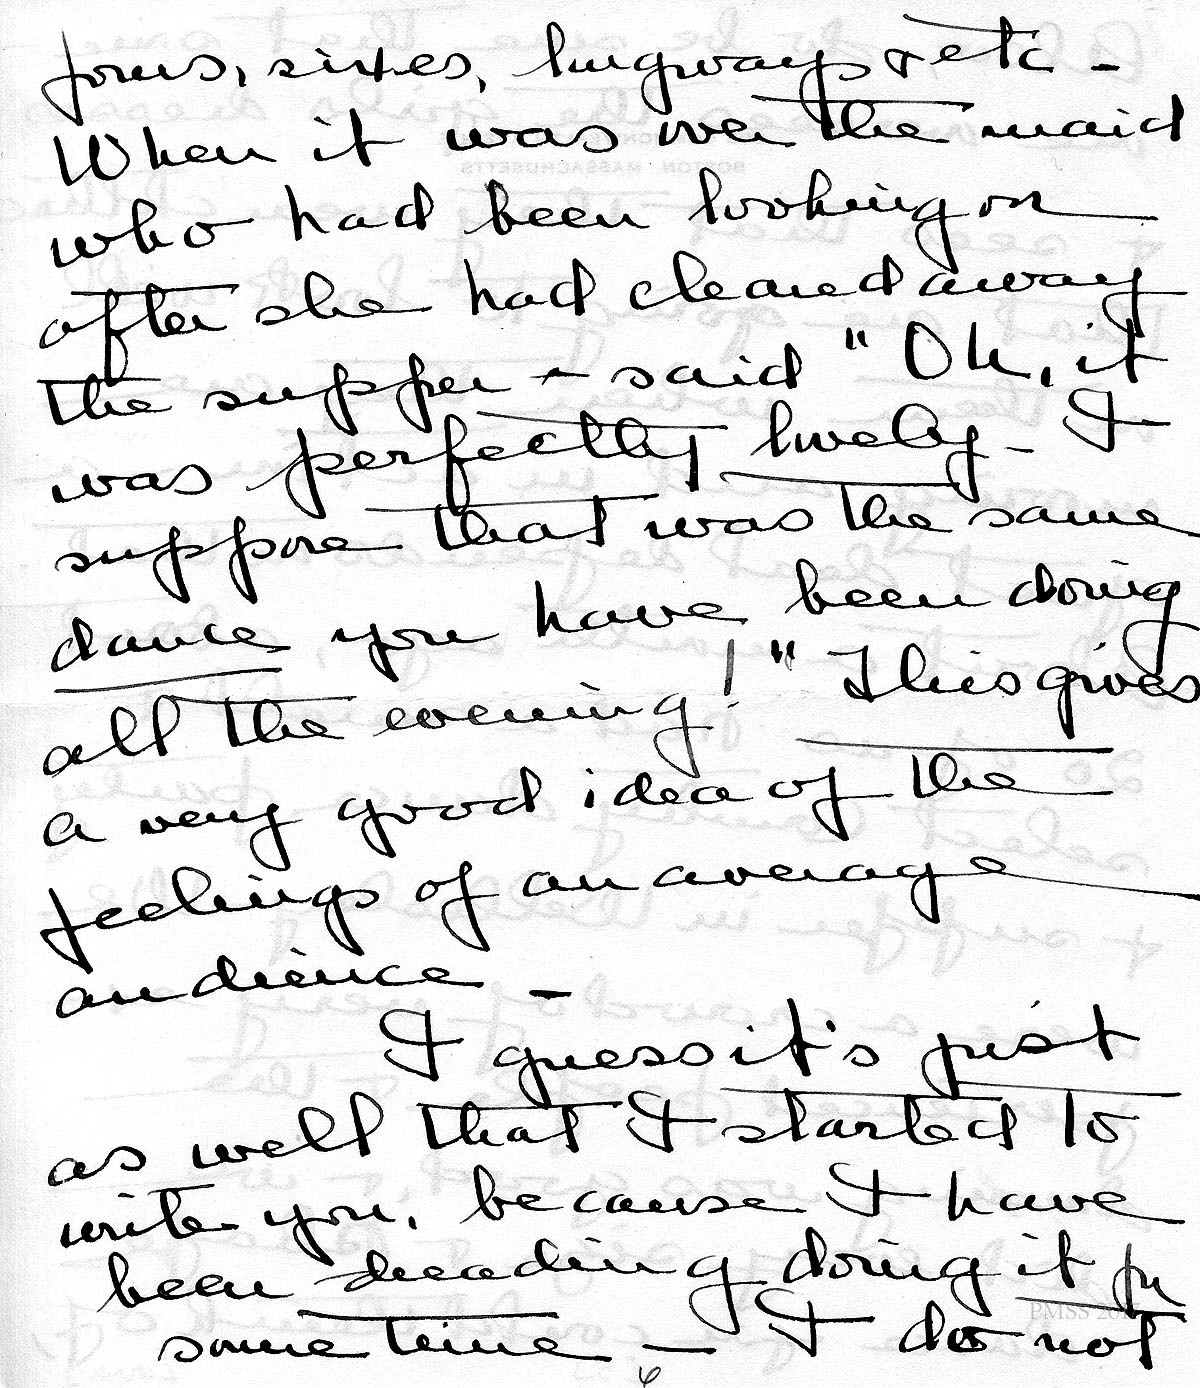 fours, sixes, lingways & etc -
When it was over the maid
who had been looking on
after she had cleared away
the supper - said " Oh, it
was perfectly lively - I
suppose that was the same
dance you have been doing
all the evening! " This gives
a very good idea of the
feelings of an average
audience -
I guess it's just
as well that I started to
write you, because I have
been dreading doing it for
some time - I do not
6
BOSTON MASSACHUSETTS
PMSS